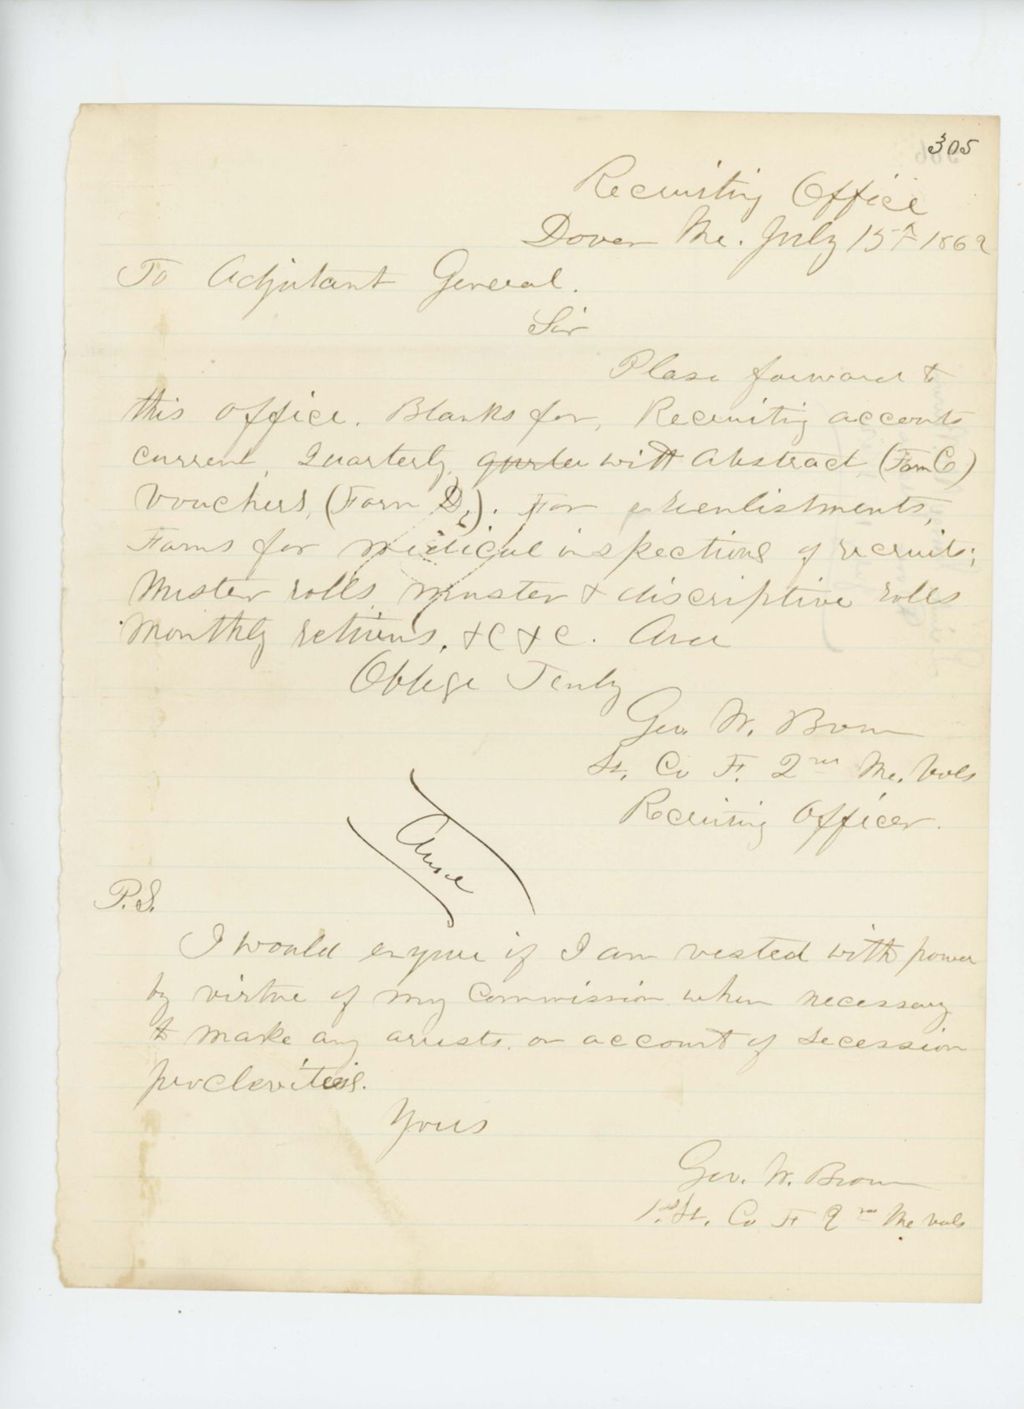 305
Recruiting Office
Dover Me. July 15th 1862
To Adjutant General.
Sir
Please forward to
this office. Blanks for, Recruiting accounts
current, Quarterly, quarter with Abstract (Form C)
Vouchers, (Form D,). For reenlistments,
Forms for medical inspections of recruits;
Muster rolls, muster & discriptive rolls
Monthly returns, &C &C. And
Oblige Truly
Geo. W. Brown
Lt. Co F. 2nd Me. Vols
Recruiting Officer.
Ansd
P.S.
I would enquire if I am vested with power
by virtue of my Commission when necessary
to make any arrests on account of secession
proclevities.
Yours
Geo. W. Brown
1st Lt. Co F 2nd Me Vols